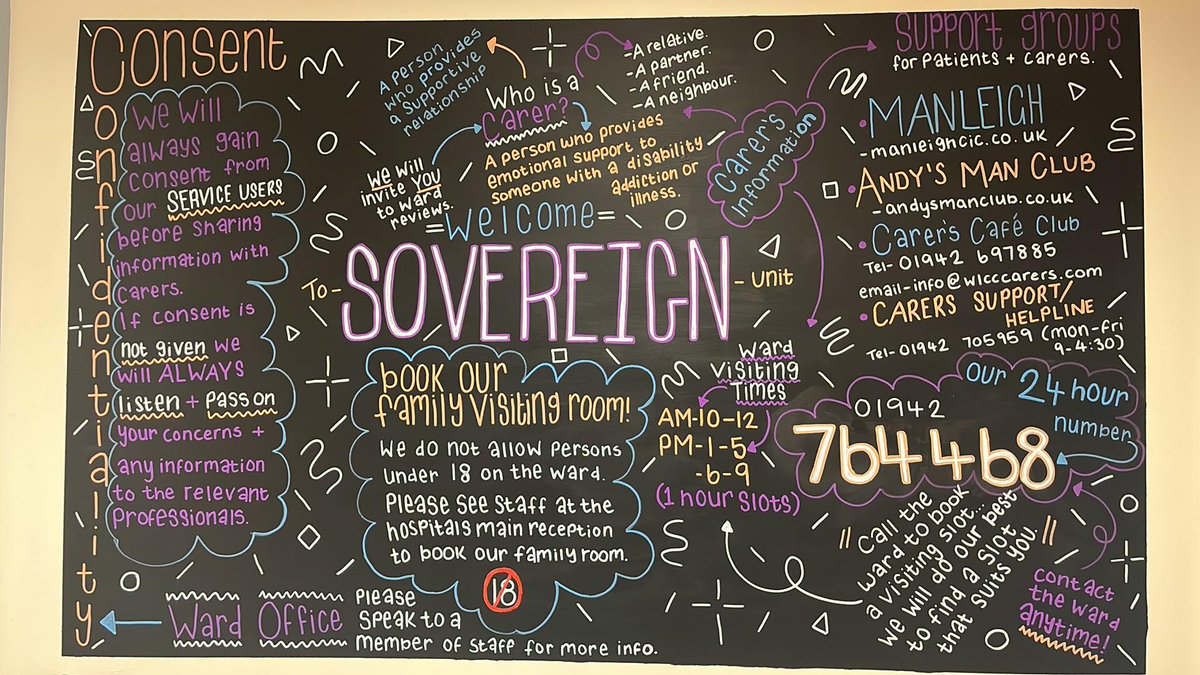 Consent
Confidentiality
we will
always gain
consent from
our SERVICE USERS
before sharing
information with
carers.
If consent is
not given we
will ALWAYS
listen + pass on
your concerns +
any information
to the relevant
professionals.
A person
who provides
a supportive
relationship
Who is a
Carer?
-A relative.
-A partner.
-A friend.
-A neighbour.
A person who provides
emotional support to
someone with a disability
addiction or
illness.
We will
invite YOU
to ward
reviews.
Carer's
Information
Support groups
for patients + carers.
• MANLEIGH
-manleighcic.co.uk
• ANDY'S MAN CLUB
-andysmanclub.co.uk
• Carer's Café Club
Tel-01942 697885
email-info@wlcccarers.com
• CARERS SUPPORT/
HELPLINE
Tel-01942 705959 (mon-fri
9-4:30)
=Welcome=
To-SOVEREIGN-unit
book our
family visiting room!
We do not allow persons
under 18 on the ward.
Please see staff at the
hospitals main reception
to book our family room.
18
Ward
Visiting
Times
AM-10-12
PM-1-5
-6-9
(1 hour slots)
our 24 hour
number
01942
764468
// Call the
ward to book
a visiting slot...
we will do our best
to find a slot
that suits you //
contact
the ward
anytime!
Ward Office
Please
speak to a
member of staff for more info.